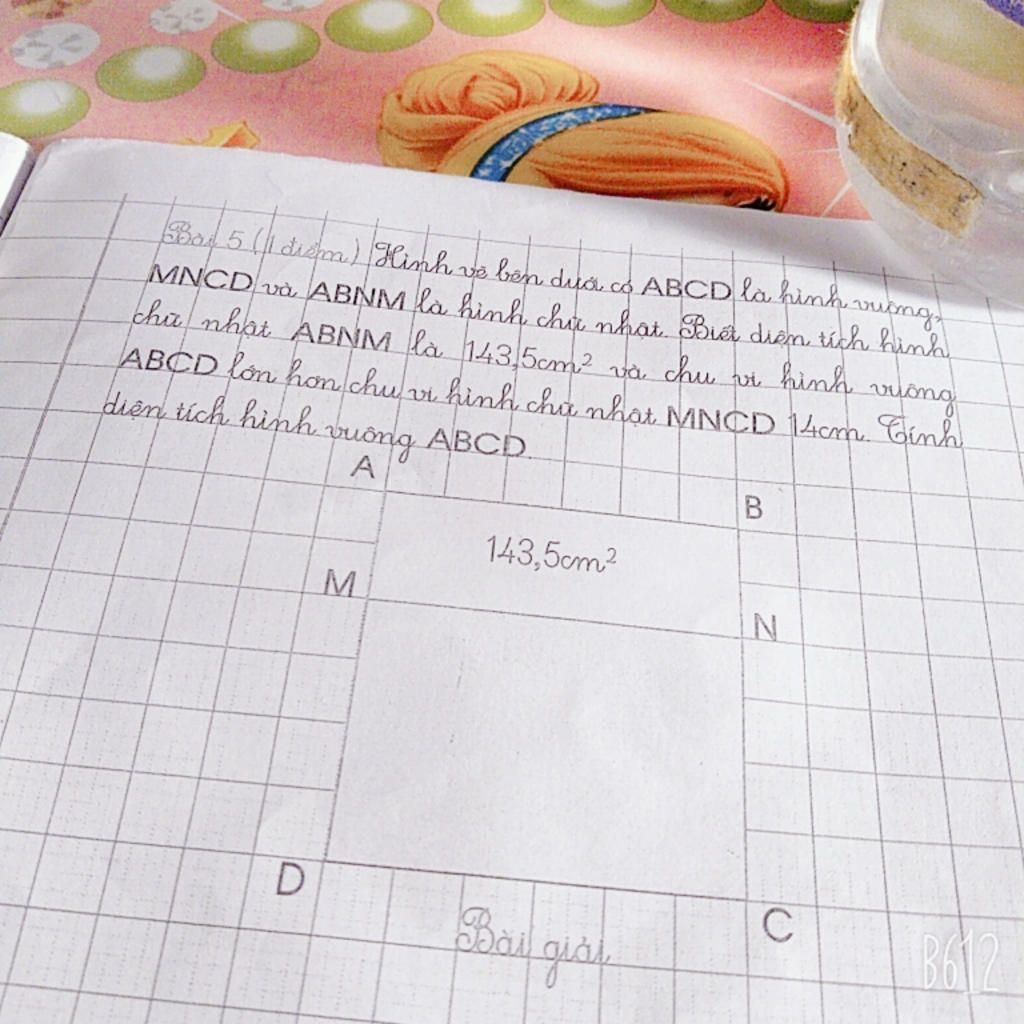 Bài 5 (1 điểm) Hình vẽ bên dưới có ABCD là hình vuông,
MNCD và ABNM là hình chữ nhật. Biết diện tích hình
chữ nhật ABNM là 143,5cm² và chu vi hình vuông
ABCD lớn hơn chu vi hình chữ nhật MNCD 14cm. Tính
diện tích hình vuông ABCD.
A
B
143,5cm²
M
N
D
C
Bài giải
B612